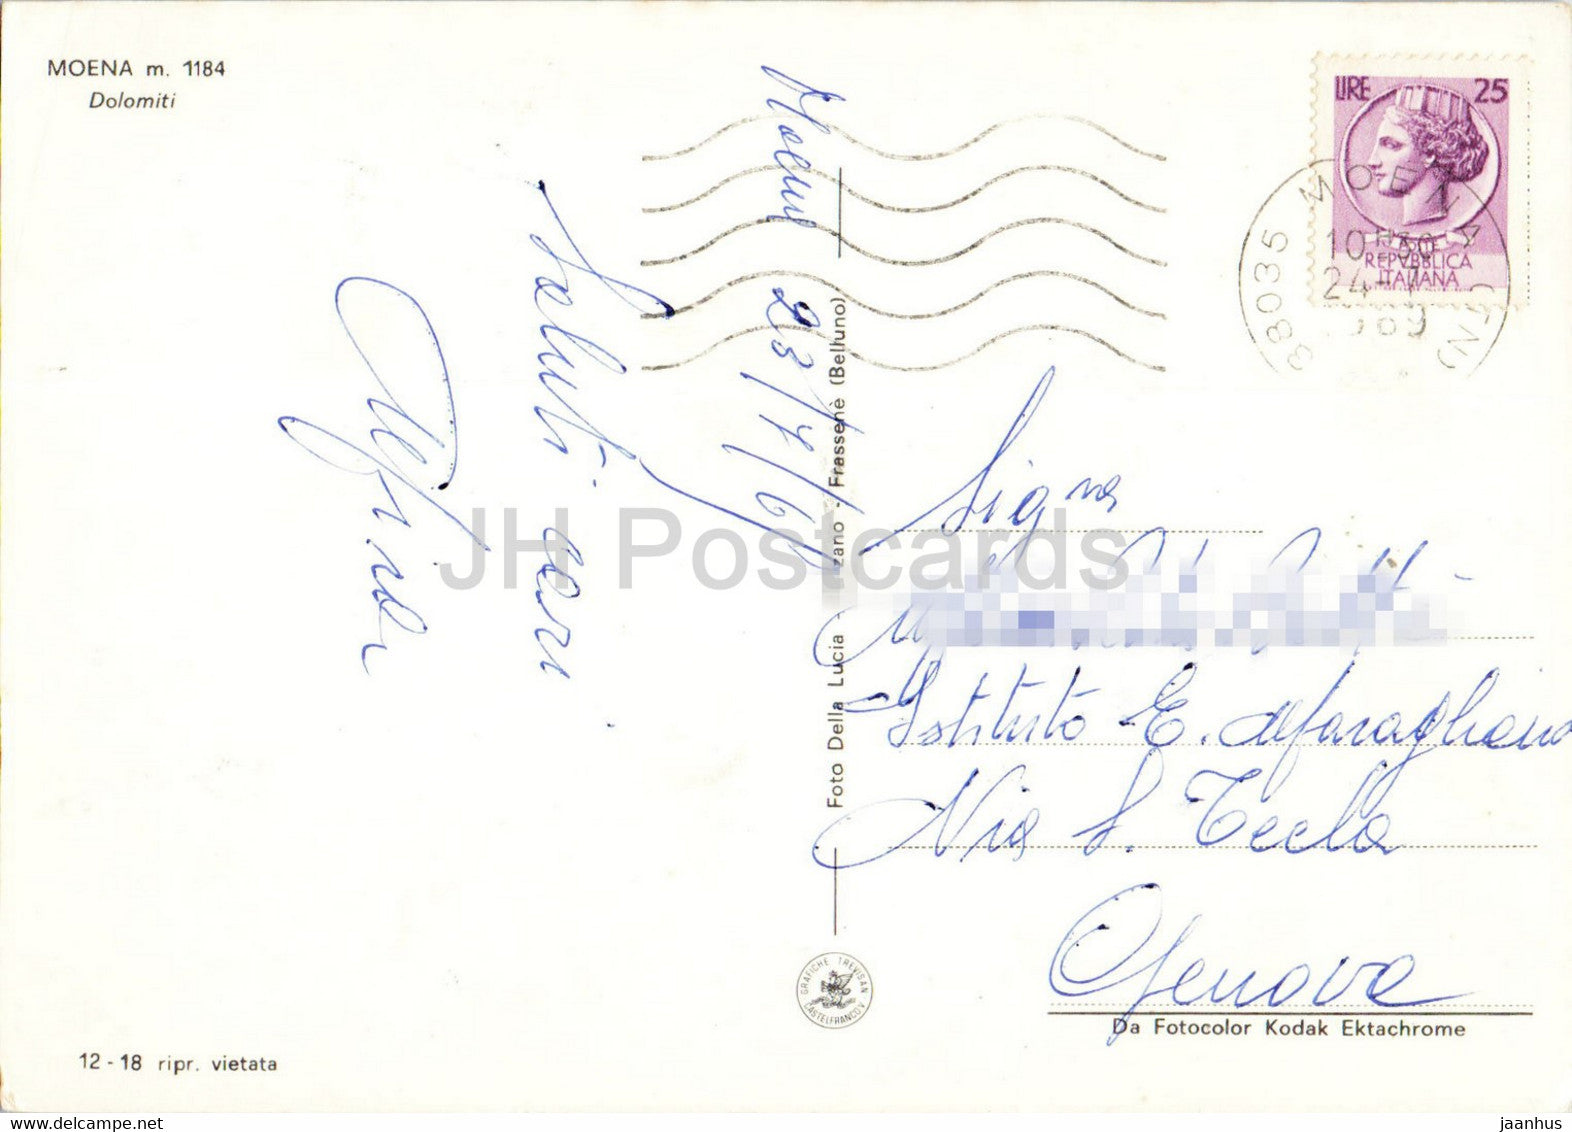 MOENA m. 1184
Dolomiti
LIRE 25
REPVBBLICA
ITALIANA
38035 MOENA (TN)
10
24
1969
Moena 23/7/69
Saluti cari
Foto Della Lucia
zano - Frassenè (Belluno)
JH Postcards
Sig.na
Istituto E.
Via S. Tecla
Genova
Da Fotocolor Kodak Ektachrome
GRAFICHE TREVISAN
CASTELFRANCO V.
12 - 18 ripr. vietata
www.delcampe.net
jaanhus